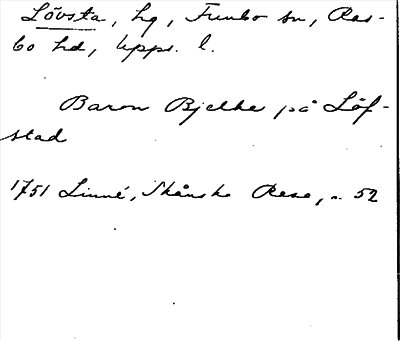 Lövsta, hg, Funbo sn, Ras-
bo hd, Upps. l.
Baron Bjelke på Löf-
stad
1751 Linné, Skånska Resa, s. 52